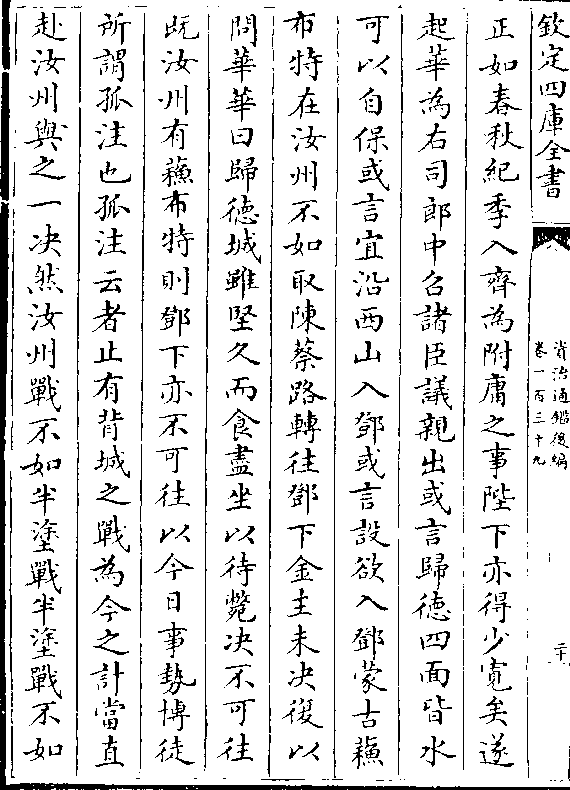 欽定四庫全書
資治通鑑後編
卷一百三十九
二十
正如春秋紀季入齊為附庸之事陛下亦得少寛矣遂
起華為右司郎中召諸臣議親出或言歸徳四面皆水
可以自保或言宜沿西山入鄧或言設欲入鄧蒙古蘓
布特在汝州不如取陳蔡路轉往鄧下金主未决復以
問華華曰歸徳城雖堅久而食盡坐以待斃决不可往
既汝州有蘓布特則鄧下亦不可往以今日事勢博徒
所謂孤注也孤注云者止有背城之戰為今之計當直
赴汝州與之一决然汝州戰不如半塗戰半塗戰不如